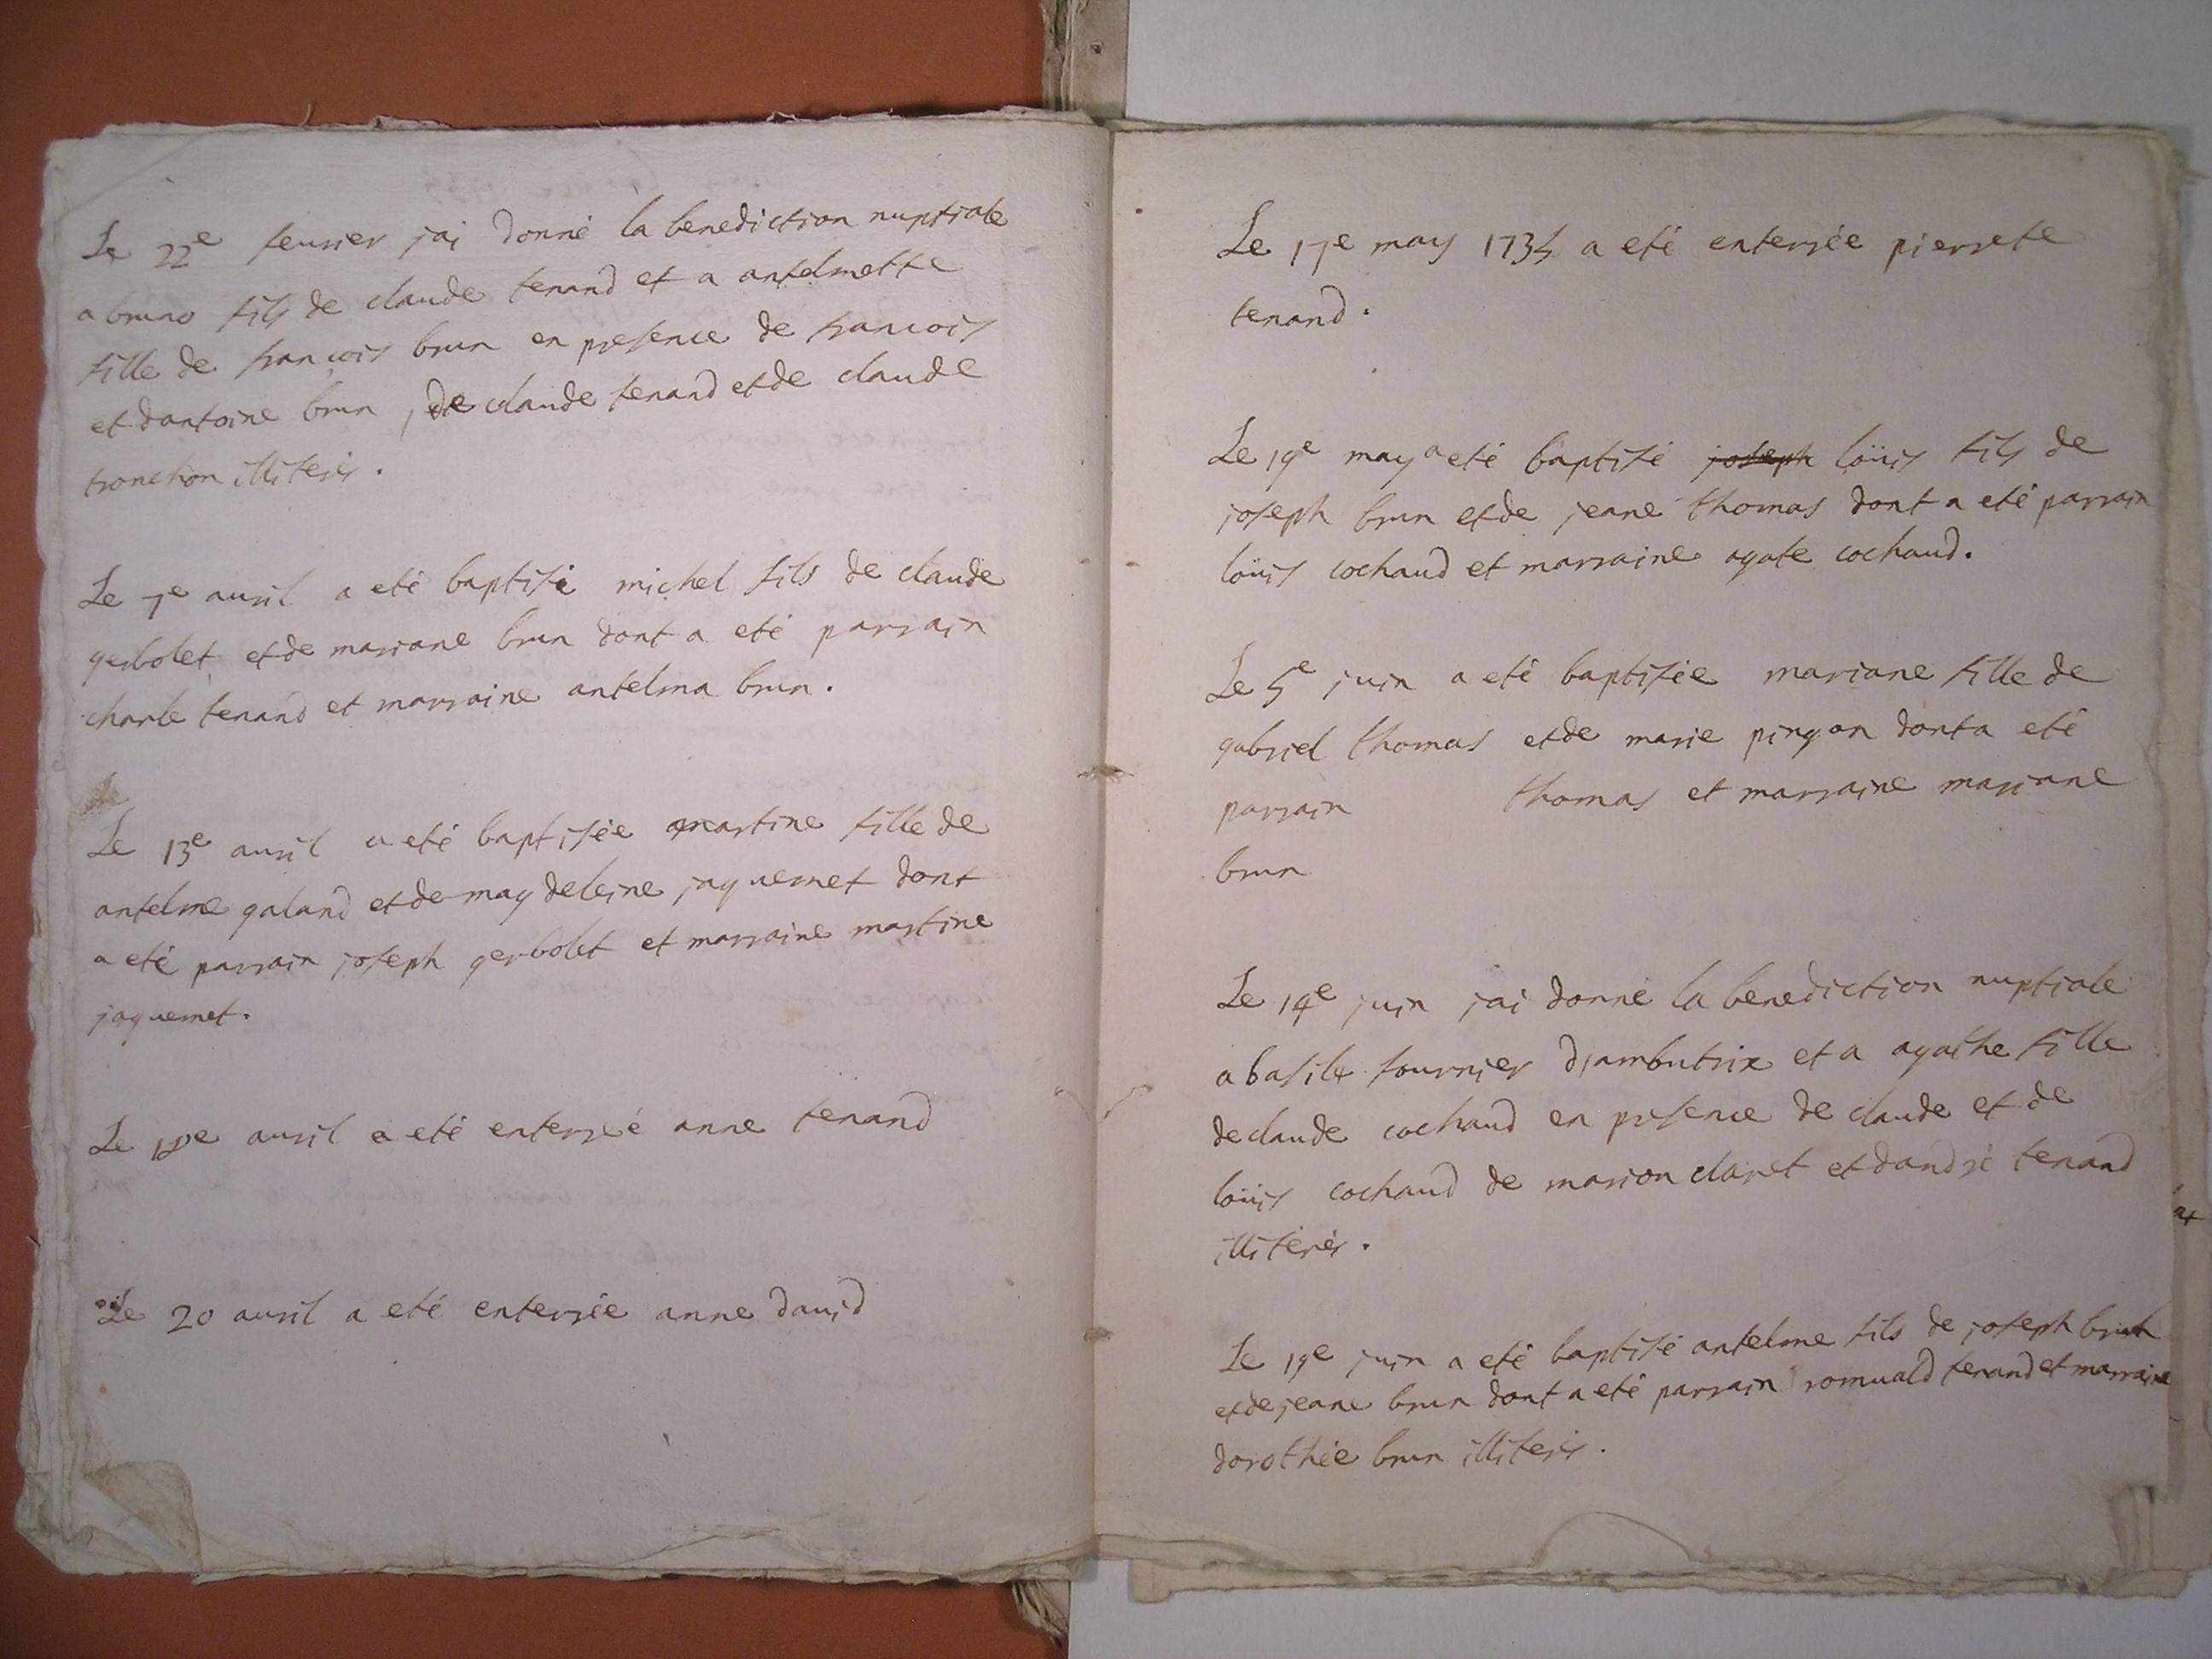 Le 22e feurier jai donné la benediction nuptiale
a bruno fils de claude tenand et a antelmette
fille de francois brun en presence de francois
et dantoine brun, de claude tenand et de claude
tronchon illiterés.
Le 7e auril a eté baptisé michel fils de claude
gerbolet et de mariane brun dont a eté parrain
charle tenand et marraine antelma brun.
Le 13e auril a eté baptisée martine fille de
antelme galand et de magdeleine jaquemet dont
a eté parrain joseph gerbolet et marraine martine
jaquemet.
Le auril a eté enterreé anne tenand
Le 20 auril a eté enterrée anne dauid
Le 17e may 1734 a eté enterrée pierrete
tenand.
Le 19e may a eté baptisé joseph loüis fils de
joseph brun et de jeane thomas dont a eté parrain
loüis cochaud et marraine agate cochaud.
Le 5e juin a eté baptisée mariane fille de
gabriel thomas et de marie pingon dont a eté
parrain thomas et marraine mariane
brun
Le 14e juin jai donné la benediction nuptiale
a basile fournier djambutrix et a agathe fille
de claude cochaud en presence de claude et de
loüis cochaud de marion claret et dandré tenand
illiterés.
Le 19e juin a eté baptisé antelme fils de joseph brun
et de jeane brun dont a eté parrain romuald tenand et marraine
dorothée brun illiterés.